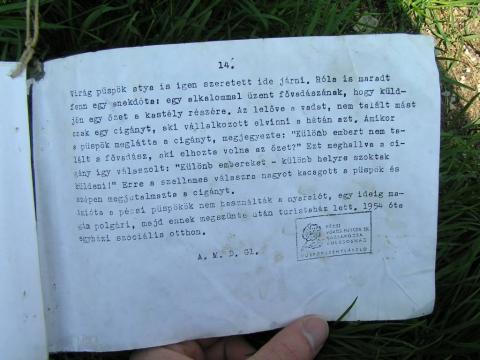 14.
Virág püspök atya is igen szeretett ide járni. Róla is maradt
fenn egy anekdóta: egy alkalommal üzent fővadászának, hogy küld-
jön egy őzet a kastély részére. Az lelőve a vadat, nem talált mást
csak egy cigányt, aki vállalkozott elvinni a hátán azt. Amikor
a püspök meglátta a cigányt, megjegyezte: "Különb embert nem ta-
lált a fővadász, aki elhozta volna az őzet?" Ezt meghallva a ci-
gány így válaszolt: "Különb embereket - különb helyre szoktak
küldeni!" Erre a szellemes válaszra nagyot kacagott a püspök és
szépen megjutalmazta a cigányt.
a pécsi püspökök nem használták a nyaralót, egy ideig ma-
gán polgári, majd ennek megszünte után turistaház lett. 1954 óta
egyházi szociális otthon.
A. M. D. Gl.
PÉCSI
PÜSPÖKSZENTLÁSZLÓ